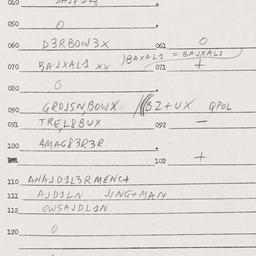 050 0
060 D3RBOW3X 061 0
070 BAJXAL1 XX )BAXAL1 = BAJXAL1) 071 +
080 0
090 GROJSN,BOWX BZ+UX QPOL
091 TREL8BUX 092 —
100 4MAG83R3R
102 +
110 ANAJD1L3RMENC+
111 AJD1LN JING+MAN
112 OWSAJDL1N
120 0